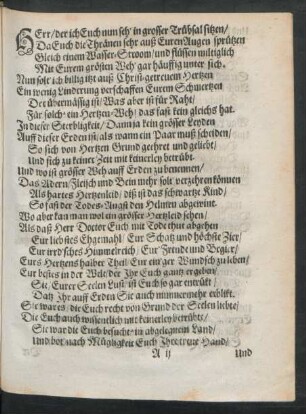 HErr/ der ich Euch nun seh' in grosser Trübsal sitzen/
Da Euch die Thränen sehr auß Euren Augen sprützen
Gleich einem Wasser-Stroom/ und flüssen mildiglich
Mit Eurem grösten Weh' gar häuffig unter sich.
Nun solt ich billig itzt auß Christ-getreuem Hertzen
Ein wenig Linderung verschaffen Eurem Schmertzen
Der übermässig ist/ Was aber ist für Raht/
Für solch' ein Hertzen-Weh/ das fast kein gleichs hat.
In dieser Sterbligkeit/ Dann ja kein grösser Leyden
Auff dieser Erden ist/ als wann ein Paar muß scheiden/
So sich von Hertzen Grund geehret und geliebt/
Und sich zu keiner Zeit mit keinerley betrübt.
Und wo ist grösser Weh auff Erden zu benennen/
Das Adern/ Fleisch und Bein mehr solt verzehren können
Als hartes Hertzenleid/ diß ist das schwartze Kind/
So fast der Todes-Angst den Helm abgewint.
Wo aber kan man wol ein grösser Hertzleid sehen/
Als daß Herr Doctor Euch mit Tode thut abgehen
Eur liebstes Ehgemahl/ Eur Schatz und höchste Zier/
Eur irrd'sches Himmelreich/ Eur Freude und Begier/
Eurs Hertzens halber Theil/ Eur ein'ger Wundsch zu leben/
Eur bestes in der Welt/ der Ihr Euch gantz ergeben/
Sie/ Eurer Seelen Lust/ ist Euch so gar entrüct/
Daß Ihr auff Erden Sie auch nimmermehr erblikt.
Sie war es/ die Euch recht von Grund der Seelen liebte/
Die Euch auch wissentlich mit keinerley betrübte/
Sie war die Euch besucht' in abgelegnem Land/
Und bot nach Mügligkeit Euch Ihre treue Hand/
A ij
Und